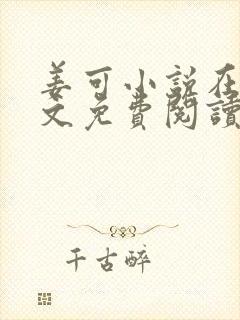 姜可小说在
文免費閱讀
千古醉